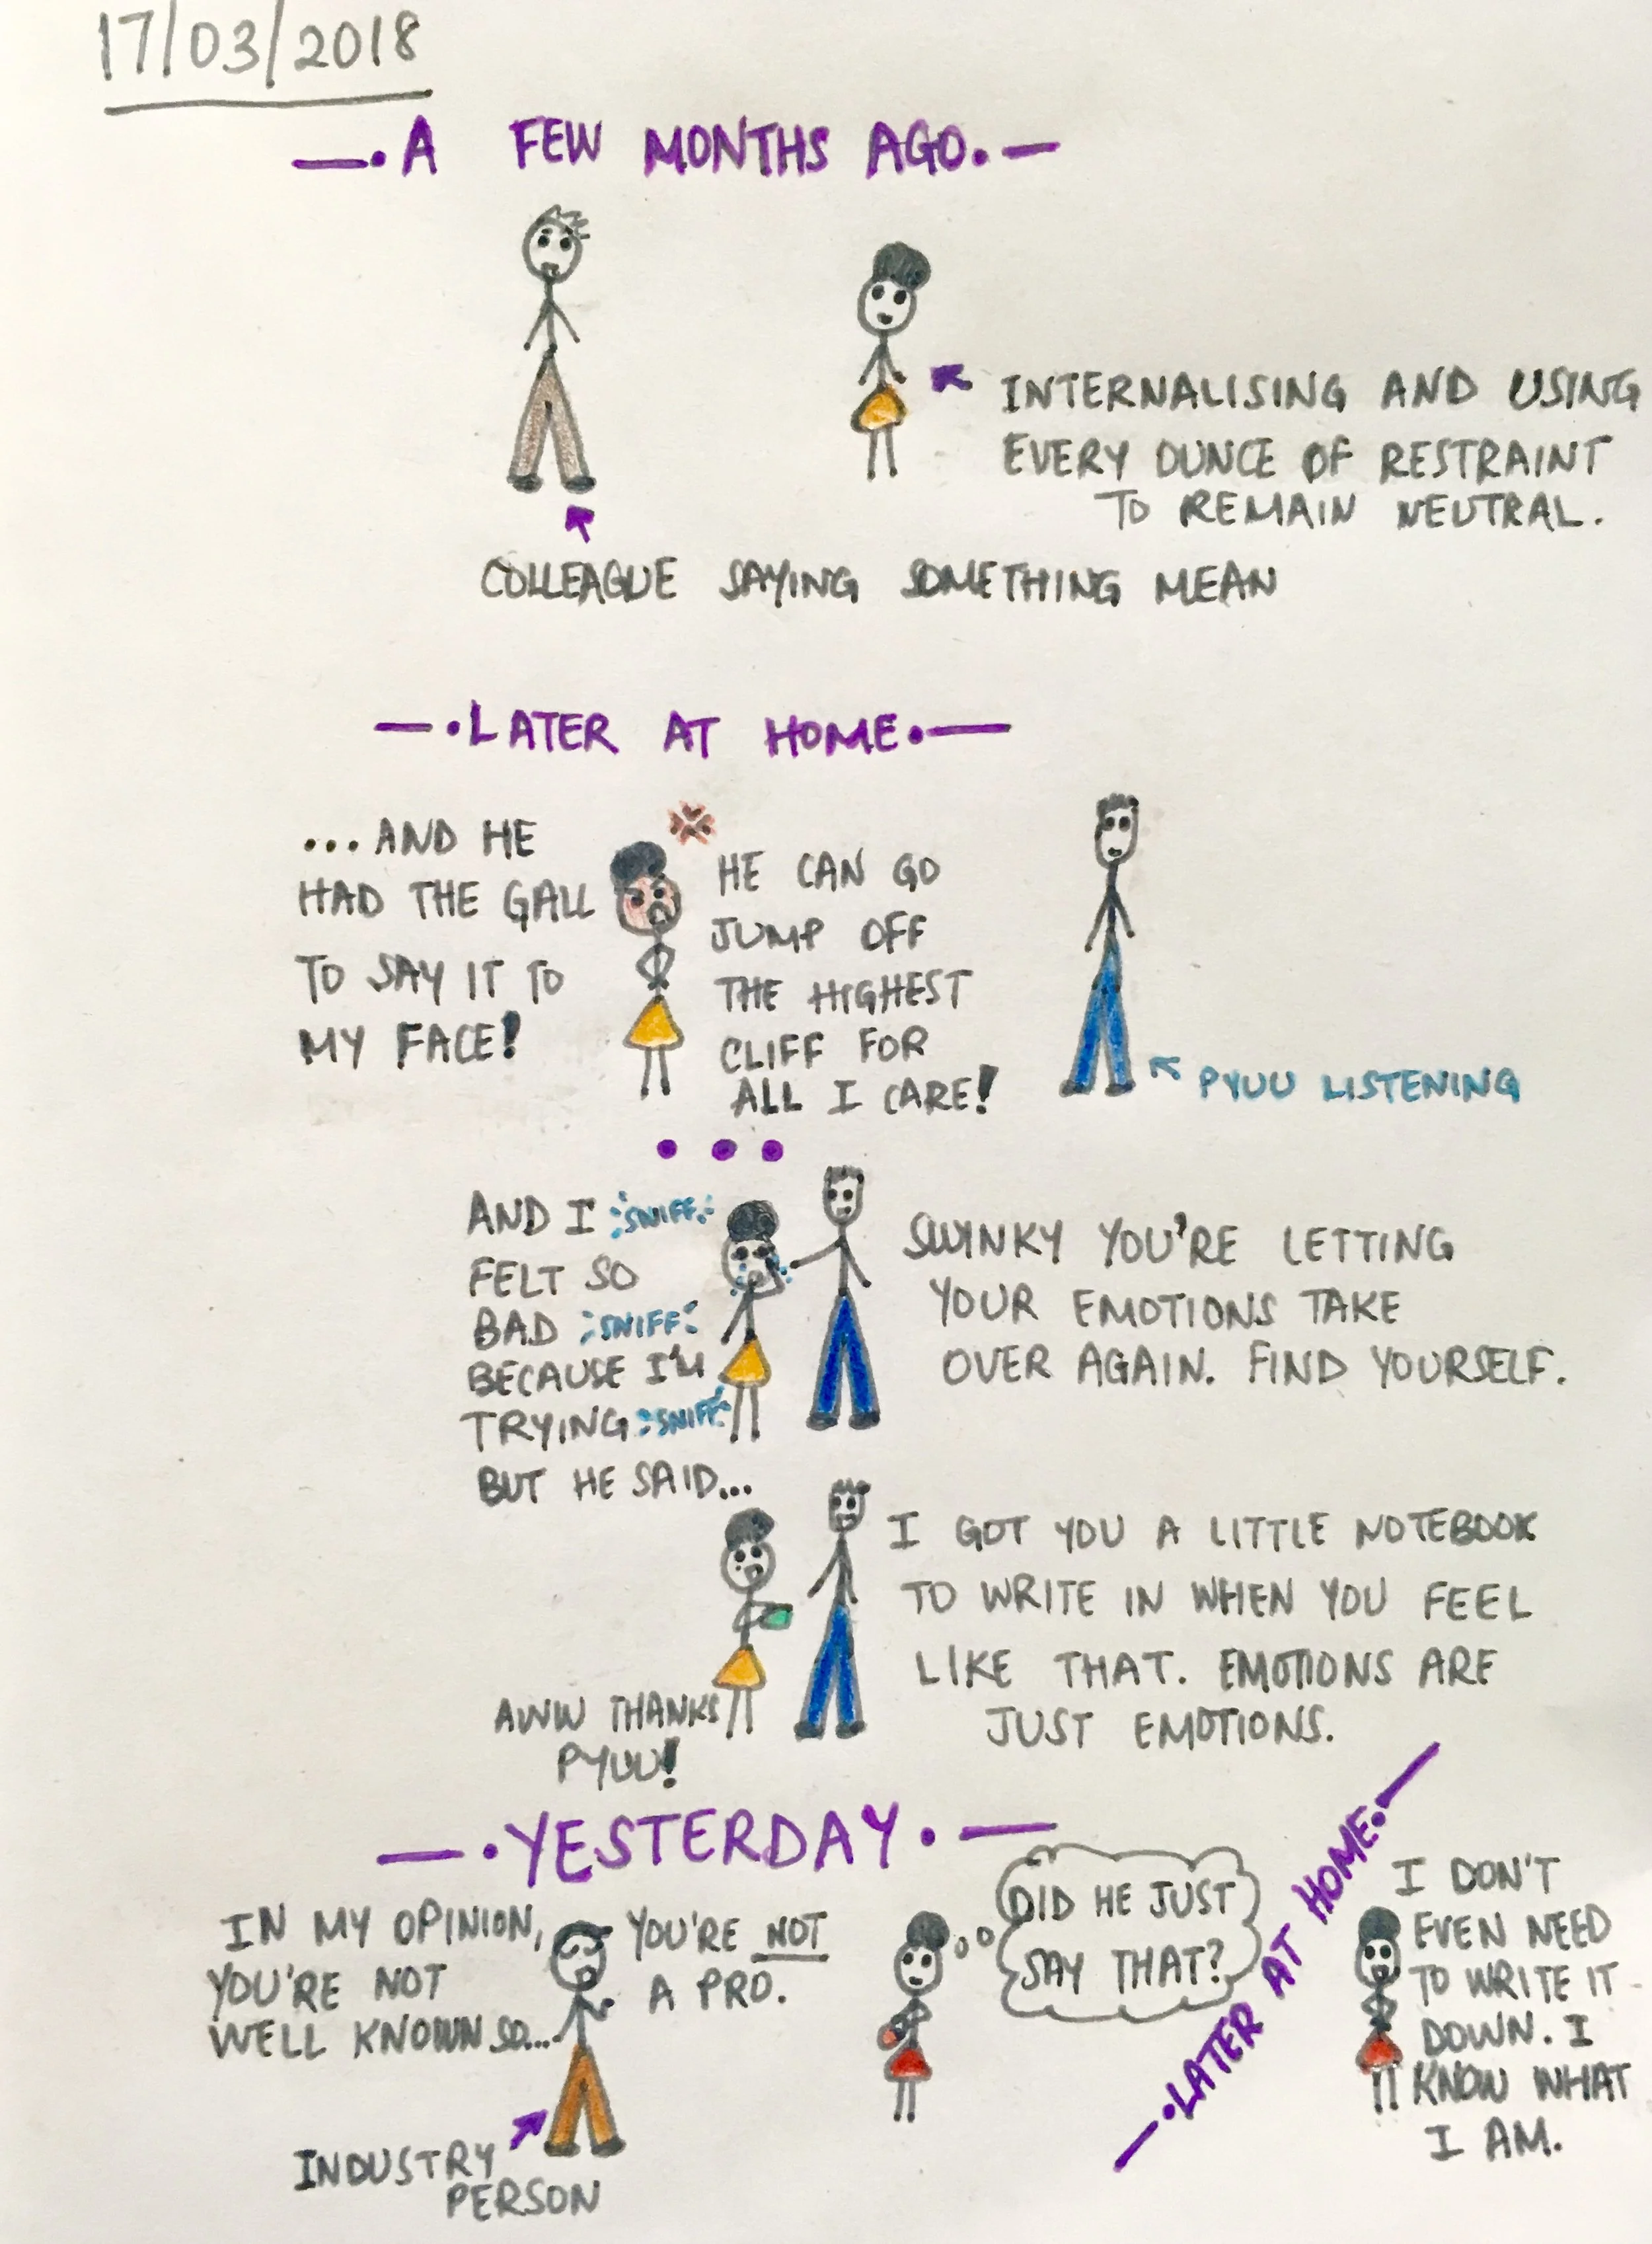 17/03/2018
A FEW MONTHS AGO.
INTERNALISING AND USING
EVERY OUNCE OF RESTRAINT
TO REMAIN NEUTRAL.
COLLEAGUE SAYING SOMETHING MEAN
LATER AT HOME.
...AND HE
HAD THE GALL
TO SAY IT TO
MY FACE!
HE CAN GO
JUMP OFF
THE HIGHEST
CLIFF FOR
ALL I CARE!
PYUU LISTENING
...
AND I SNIFF
FELT SO
BAD SNIFF
BECAUSE I'M
TRYING SNIFF
BUT HE SAID...
SWINKY YOU'RE LETTING
YOUR EMOTIONS TAKE
OVER AGAIN. FIND YOURSELF.
I GOT YOU A LITTLE NOTEBOOK
TO WRITE IN WHEN YOU FEEL
LIKE THAT. EMOTIONS ARE
JUST EMOTIONS.
AWW THANKS
PYUU!
YESTERDAY.
IN MY OPINION,
YOU'RE NOT
WELL KNOWN SO...
YOU'RE NOT
A PRO.
INDUSTRY
PERSON
DID HE JUST
SAY THAT?
LATER AT HOME.
I DON'T
EVEN NEED
TO WRITE IT
DOWN. I
KNOW WHAT
I AM.